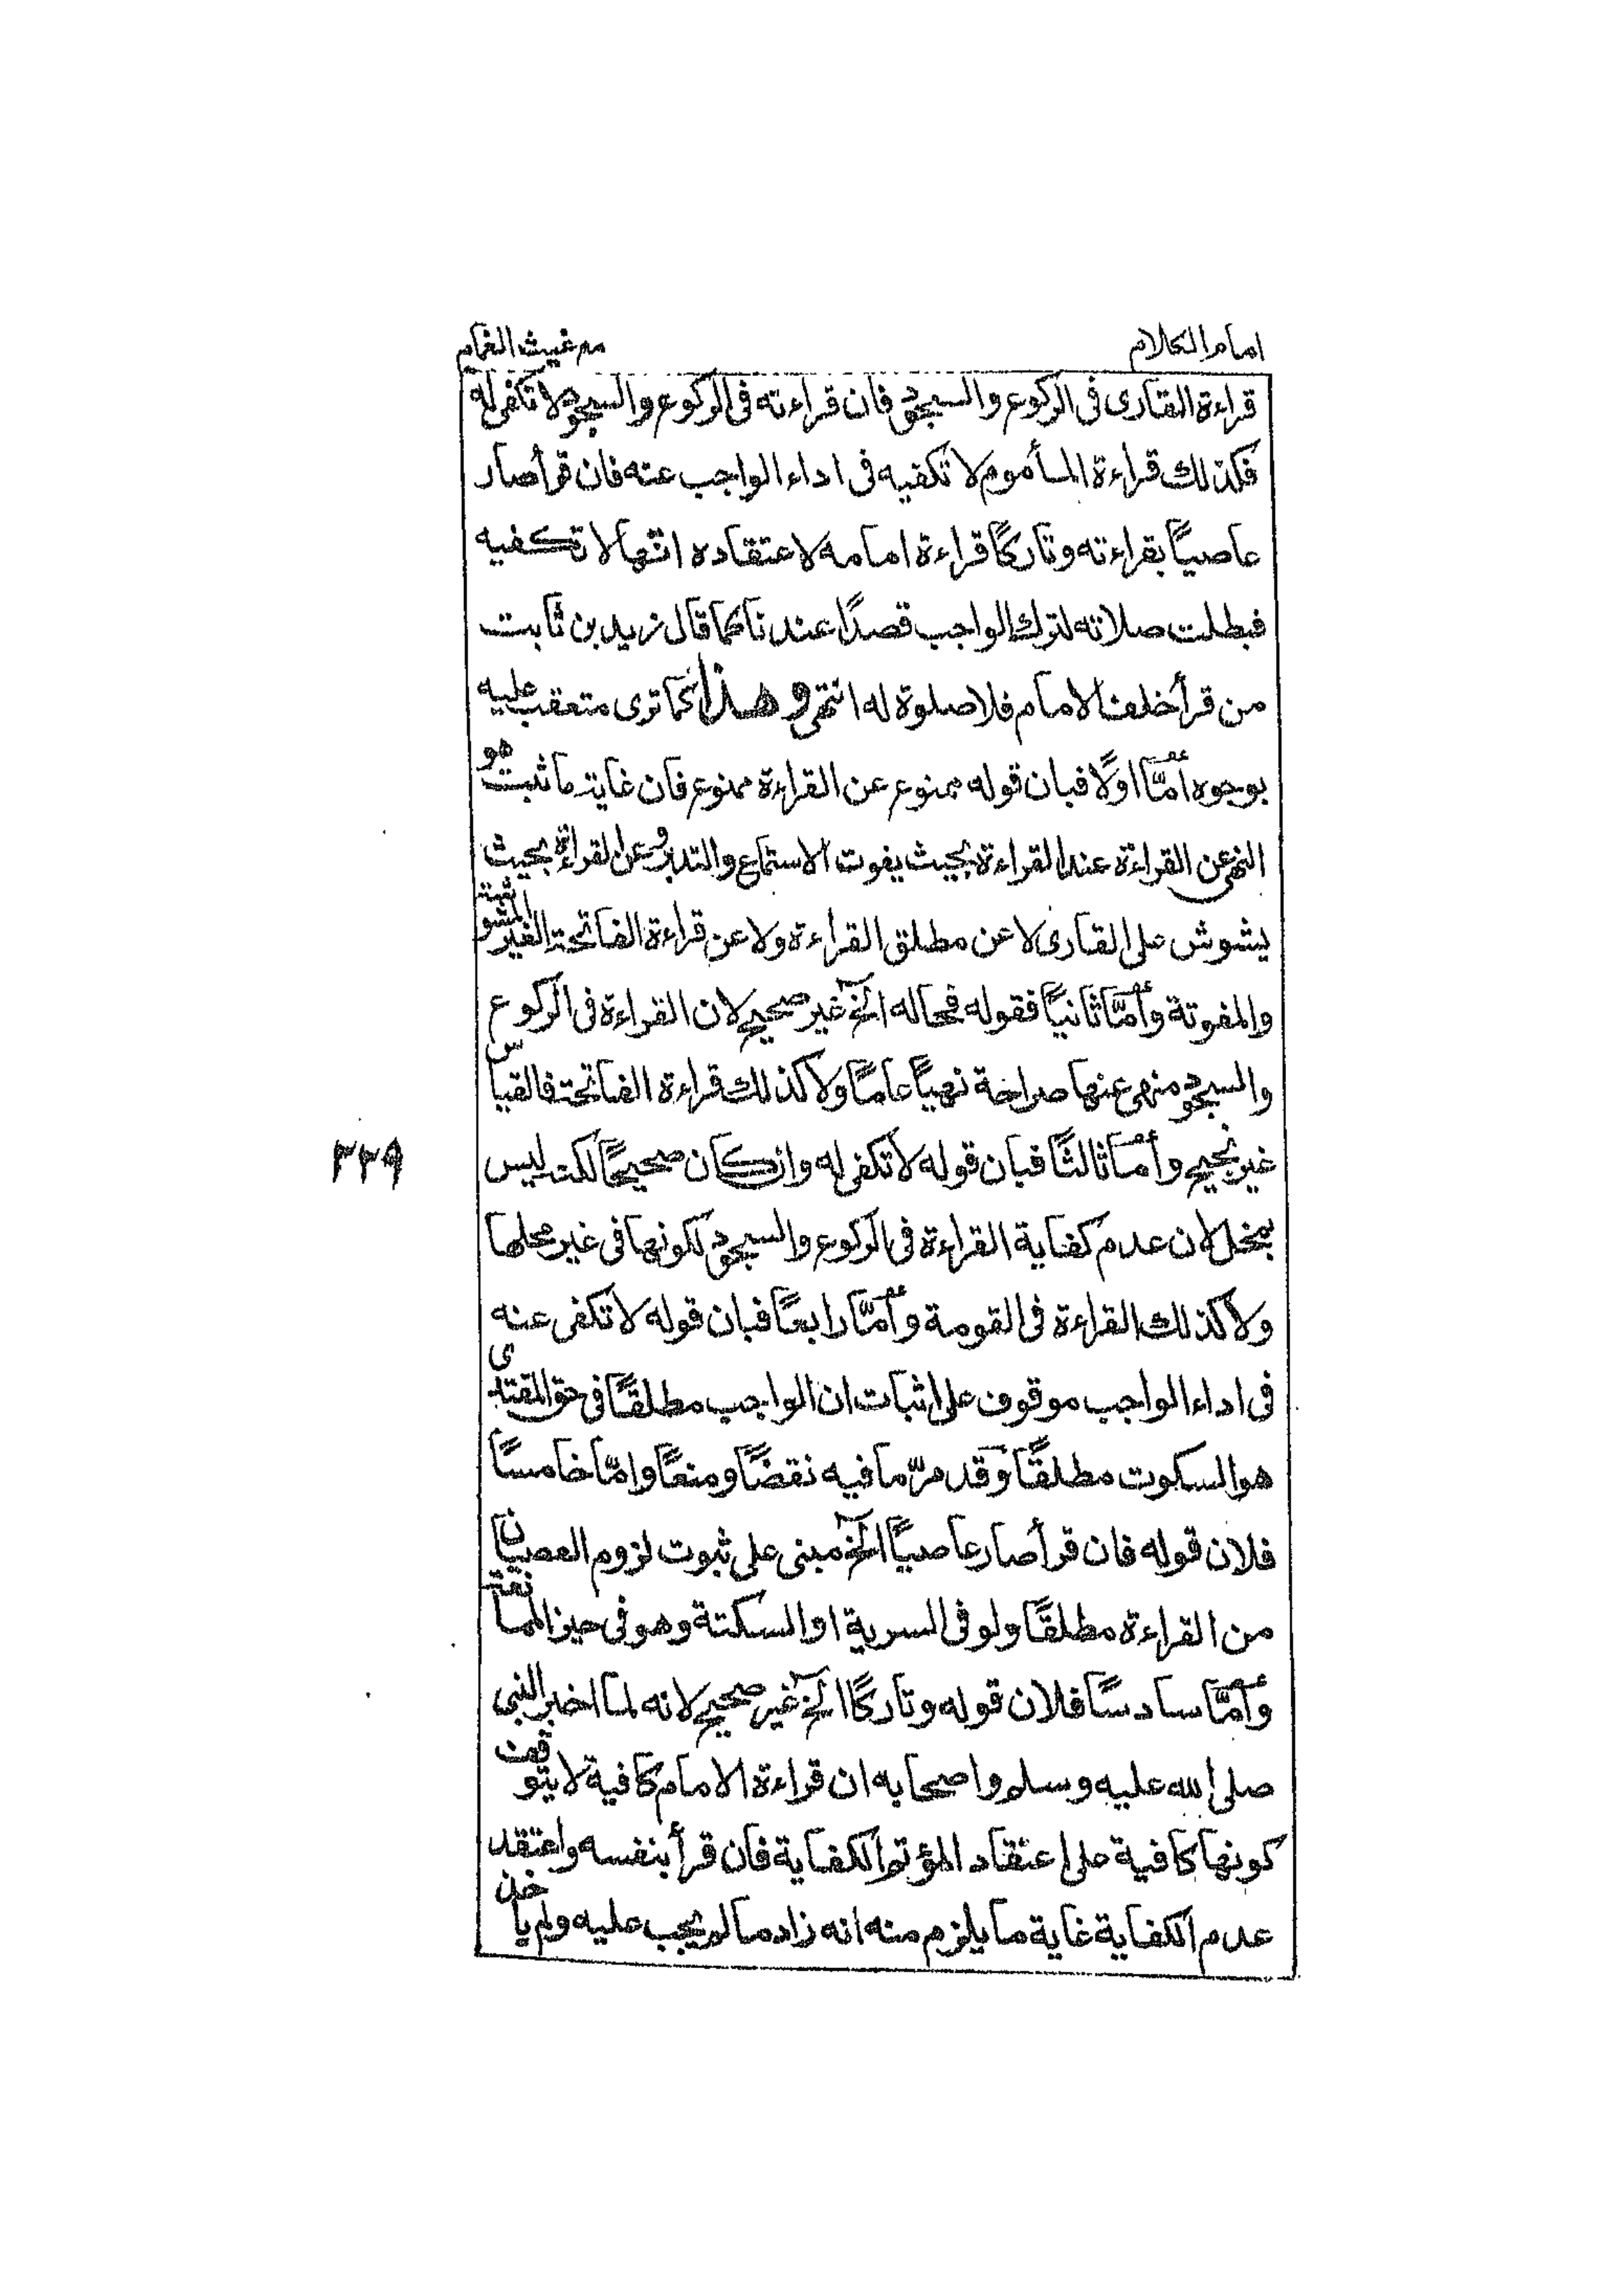 امام الكلام
مع غيث الغمام
قراءة القارى فى الركوع والسجود فان قراءته فى الركوع والسجود لا تكفى له
فكذلك قراءة المأموم لا تكفيه فى اداء الواجب عنه فان قرأ صار
عاصيًا بقراءته وتاركًا قراءة امامه لاعتقاده انّها لا تكفيه
فبطلت صلاته لترك الواجب قصدًا عندنا كما قال زيد بن ثابت
من قرأ خلف الامام فلا صلوة له انتهى وهذا كما ترى متعقب عليه
بوجوه أمّا اولًا فبان قوله ممنوع عن القراءة ممنوع فان غاية ما ثبت هو
النهى عن القراءة عند القراءة بحيث يفوت الاستماع والتدبر وعن القراءة بحيث
يشوش على القارى لا عن مطلق القراءة ولا عن قراءة الفاتحة الغير المشوشة
والمفوتة وأمّا ثانيًا فقوله فحاله الخ غير صحيح لان القراءة فى الركوع
والسجود منهى عنها صراحة نهيًا عامًا ولا كذلك قراءة الفاتحة فالقياس
غير نجيح وأما ثالثًا فبان قوله لا تكفى له وان كان صحيحًا لكنه ليس
بمخل لان عدم كفاية القراءة فى الركوع والسجود لكونها فى غير محلها
ولا كذلك القراءة فى القومة وأمّا رابعًا فبان قوله لا تكفى عنه
فى اداء الواجب موقوف على اثبات ان الواجب مطلقًا فى حق المقتدى
هو السكوت مطلقًا وقد مرّ ما فيه نقضًا ومنعًا وامّا خامسًا
فلان قوله فان قرأ صار عاصيًا الخ مبنى على ثبوت لزوم العصيان
من القراءة مطلقًا ولو فى السرية او السكتة وهو فى حيز الممانعة
وأمّا سادسًا فلان قوله وتاركًا الخ غير صحيح لانه لما اخبر النبى
صلى الله عليه وسلم واصحابه ان قراءة الامام كافية لا يتوقف
كونها كافية على اعتقاد المؤتم الكفاية فان قرأ بنفسه واعتقد
عدم الكفاية غاية ما يلزم منه انه زاد ما لم يجب عليه ولم ياخذ
٣٣٩